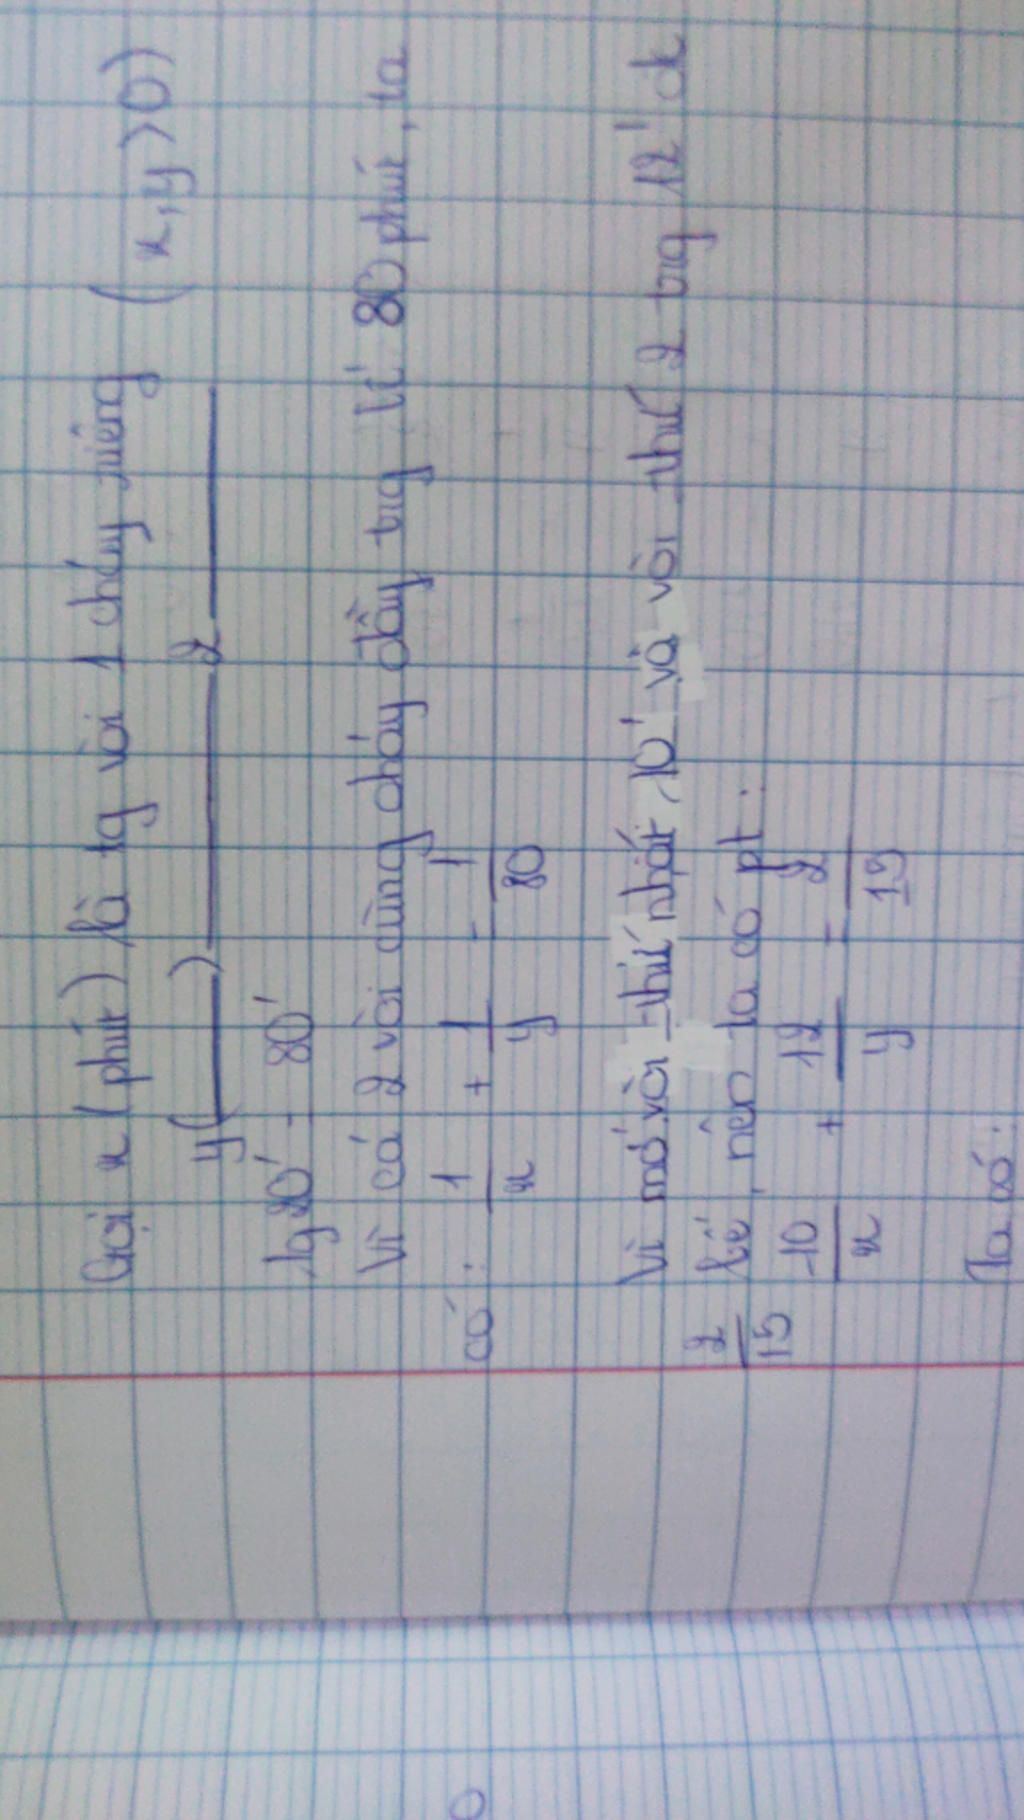 Gọi x (phút) là tg vòi 1 chảy riêng (x,y>0)
y( ) 2
1g20' = 80'
Vì cả 2 vòi cùng chảy đầy trg 80 phút, ta
có: 1/x + 1/y = 1/80
Vì mở vòi thứ nhất 10' và vòi thứ 2 trg 12' đc
2/15 bể, nên ta có pt:
10/x + 12/y = 2/15
Ta có: